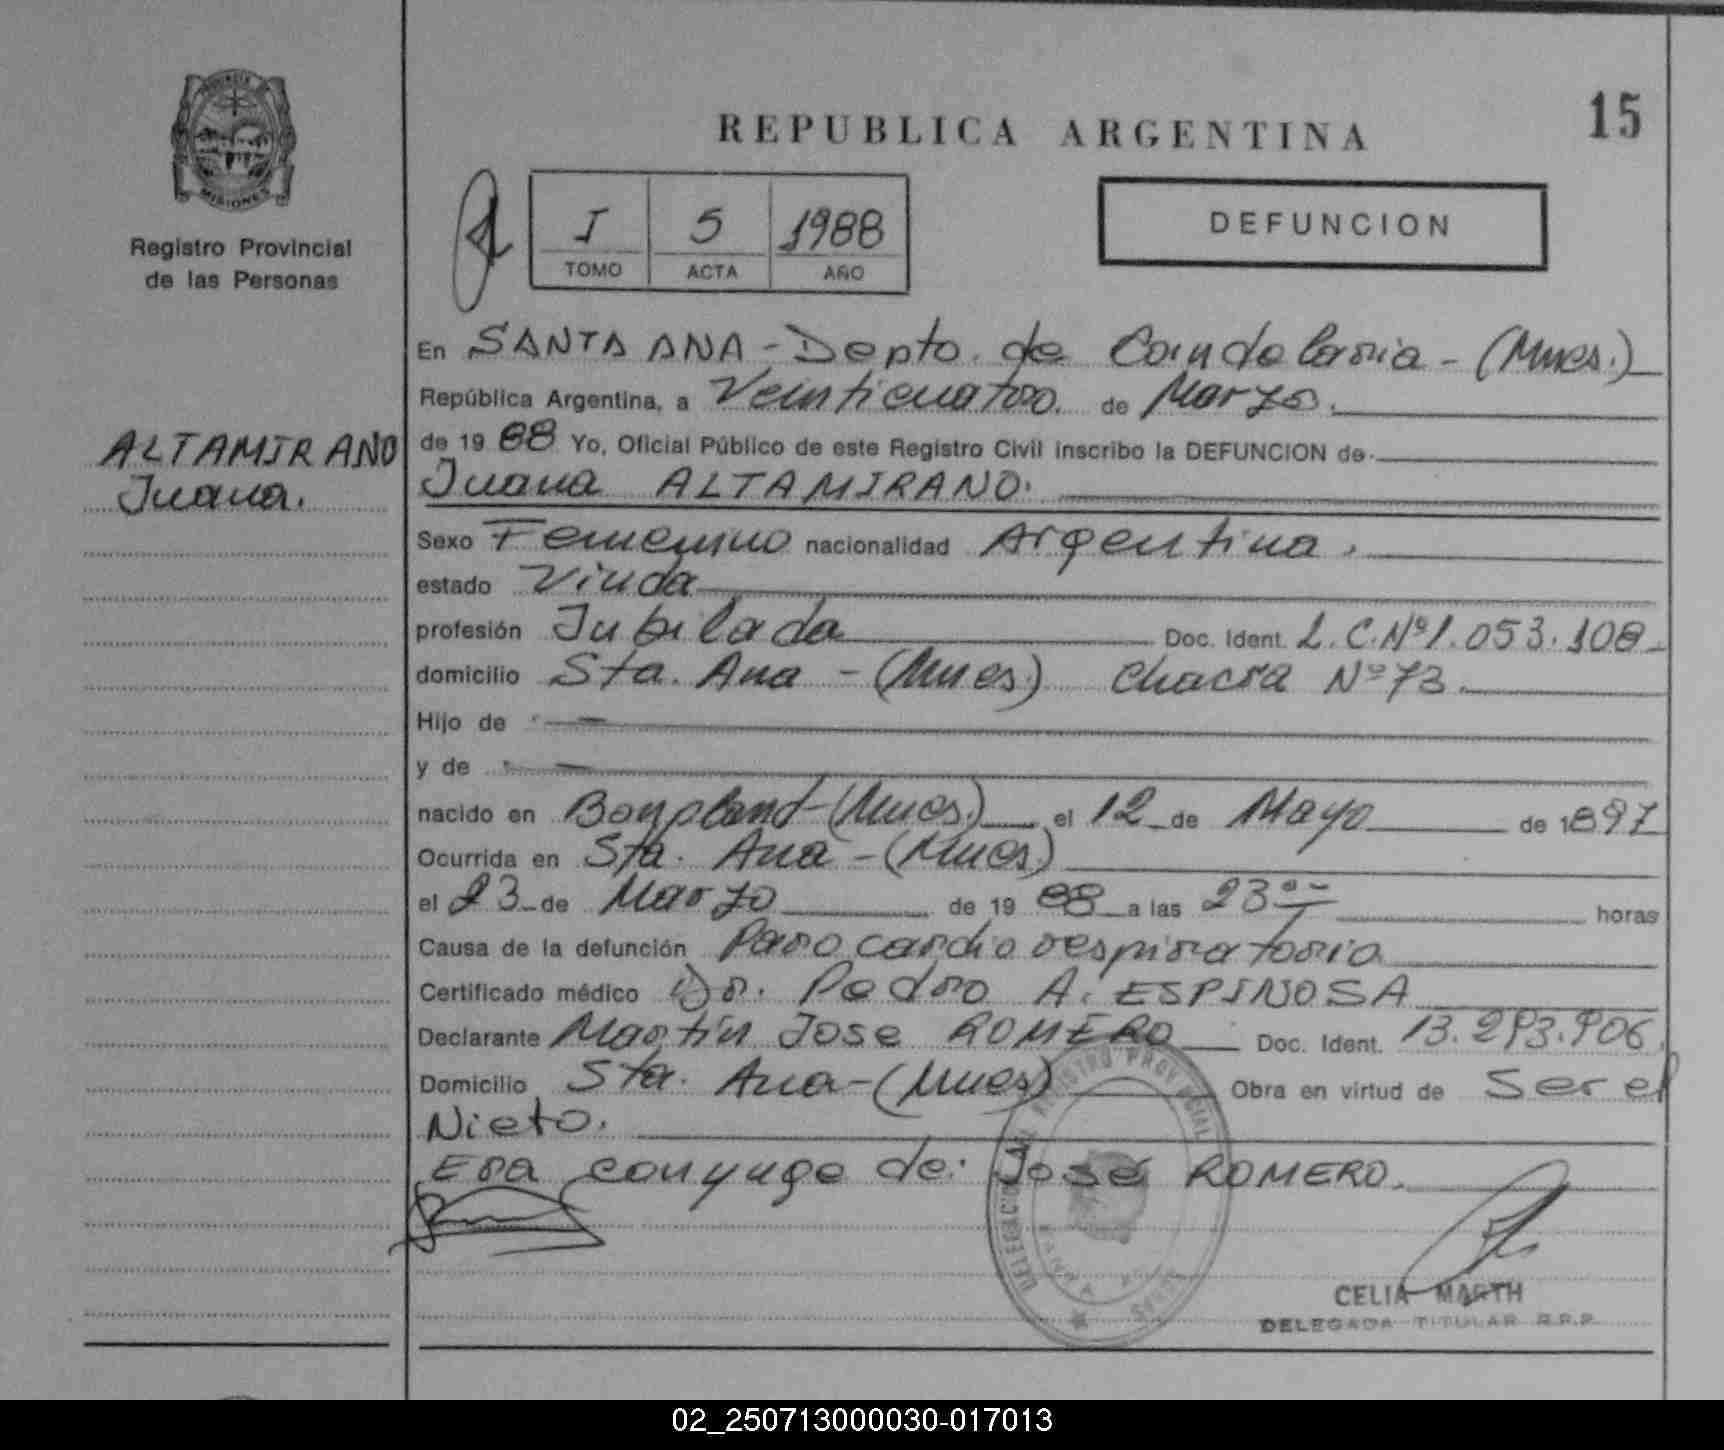 PROVINCIA
MISIONES
Registro Provincial
de las Personas
ALTAMIRANO
Juana.
REPUBLICA ARGENTINA
15
I 5 1988
TOMO ACTA AÑO
DEFUNCION
En SANTA ANA - Depto. de Candelaria - (Mnes.)
República Argentina, a Veinticuatro de Marzo.
de 19 88 Yo, Oficial Público de este Registro Civil inscribo la DEFUNCION de
Juana ALTAMIRANO.
Sexo Femenino nacionalidad Argentina.
estado Viuda
profesión Jubilada Doc. Ident. L.C.Nº1.053.108
domicilio Sta. Ana - (Mnes.) Chacra Nº73.
Hijo de
y de
nacido en Bonpland - (Mnes.) el 12 de Mayo de 1897
Ocurrida en Sta. Ana - (Mnes.)
el 23 de Marzo de 19 88 a las 23 horas
Causa de la defunción Paro cardio respiratorio
Certificado médico Dr. Pedro A. ESPINOSA
Declarante Martín Jose ROMERO Doc. Ident. 13.293.906
Domicilio Sta. Ana - (Mnes) Obra en virtud de Ser el
Nieto.
Era conyuge de: José ROMERO.
CELIA MARTH
DELEGADA TITULAR R.P.P.
02_250713000030-017013